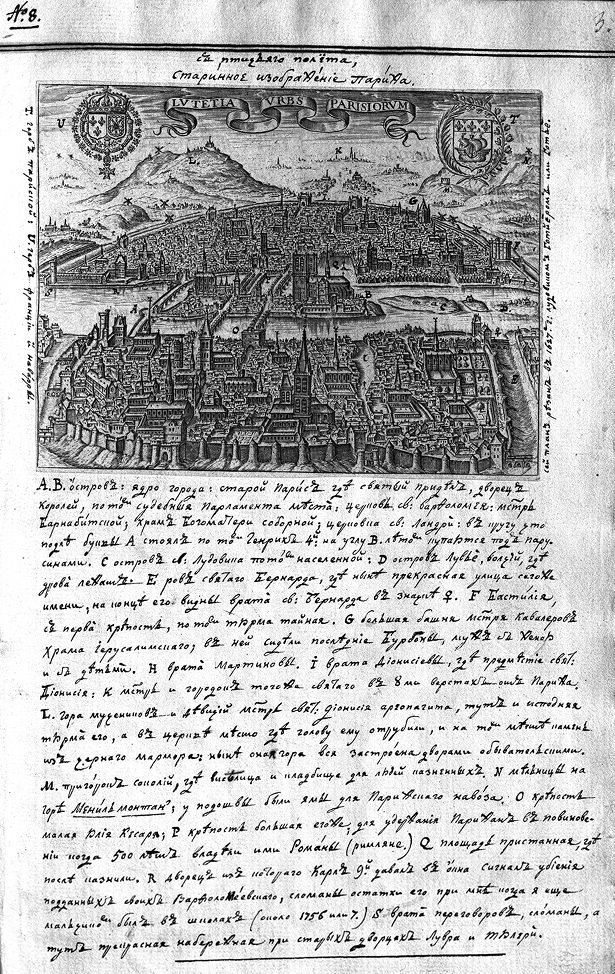 № 8.
3.
съ птичьяго полёта,
Старинное изображеніе Парижа.
LVTETIA VRBS PARISIORVM
U
T
L
K
G
A
B
C
E
T. гербъ парижской: U. гербъ франціи и наварры.
сей планъ рѣзанъ въ 1627мъ г:
А.В. островъ: ядро города: старой Парисъ гдѣ святый придѣлъ, дворецъ
королей, потомъ судебныя Парламента мѣста, церковь св: варѳоломія: мстрь
Барнабитской; храмъ Богоматери соборной; церковка св: Ландри: въ кругу что
подлѣ буквы А стоялъ потомъ Генрихъ 4й на углу В. лѣтомъ купаются подъ пару-
синами. С островъ св: Лудовика потомъ населенной: D островъ Лувьё, большій, гдѣ
дрова лежатъ. Е ровъ святаго Бернарда, гдѣ нынѣ прекрасная улица сегоже
имени; на концѣ его видны врата св: Бернарда въ знакѣ ♀. F Бастилія,
съ перва крѣпость, потомъ тюрма тайная. G большая башня мстря кавалеровъ
Храма Іерусалимскаго; въ ней сидѣли послѣдніе Бурбоны, мужъ съ женою
и съ дѣтьми. H врата Мартиновы. I врата Діонисіевы, гдѣ предмѣстіе свят:
Діонисія: К мстрь и городокъ тогоже святаго въ 8ми верстахъ отъ Парижа.
L. гора мучениковъ и дѣвичій мстрь свят: Діонисія ареопагита, тутъ и исподняя
тюрма его, а въ церквѣ мѣсто гдѣ голову ему отрубили, и на томъ мѣстѣ камень
изъ чернаго мармора: нынѣ онаягора вся застроена дворами обывательскими.
М. пригорокъ гдѣ висѣлица и кладбище для людей казненныхъ. N мѣльницы на
горѣ Менильмонтан; у подошвы были ямы для Парижскаго навоза. О крѣпость
малая Юлія Кесаря; Р крѣпость большая егоже, для удержанія Парижанъ въ повинове-
ніи когда 500 лѣтъ владѣли ими Романы (римляне.) Q площадь пристанная, гдѣ
послѣ казнили. R дворецъ изъ котораго Карлъ 9й давалъ въ окна сигналъ убіенія
подданныхъ своихъ Варѳоломеевскаго, сломаны остатки его при мнѣ когда я еще
мальчикомъ былъ въ школахъ (около 1756 или 7.) S врата переговоровъ, сломаны, а
тутъ прекрасная набережная при старыхъ дворцахъ Лувра и Тюлери.